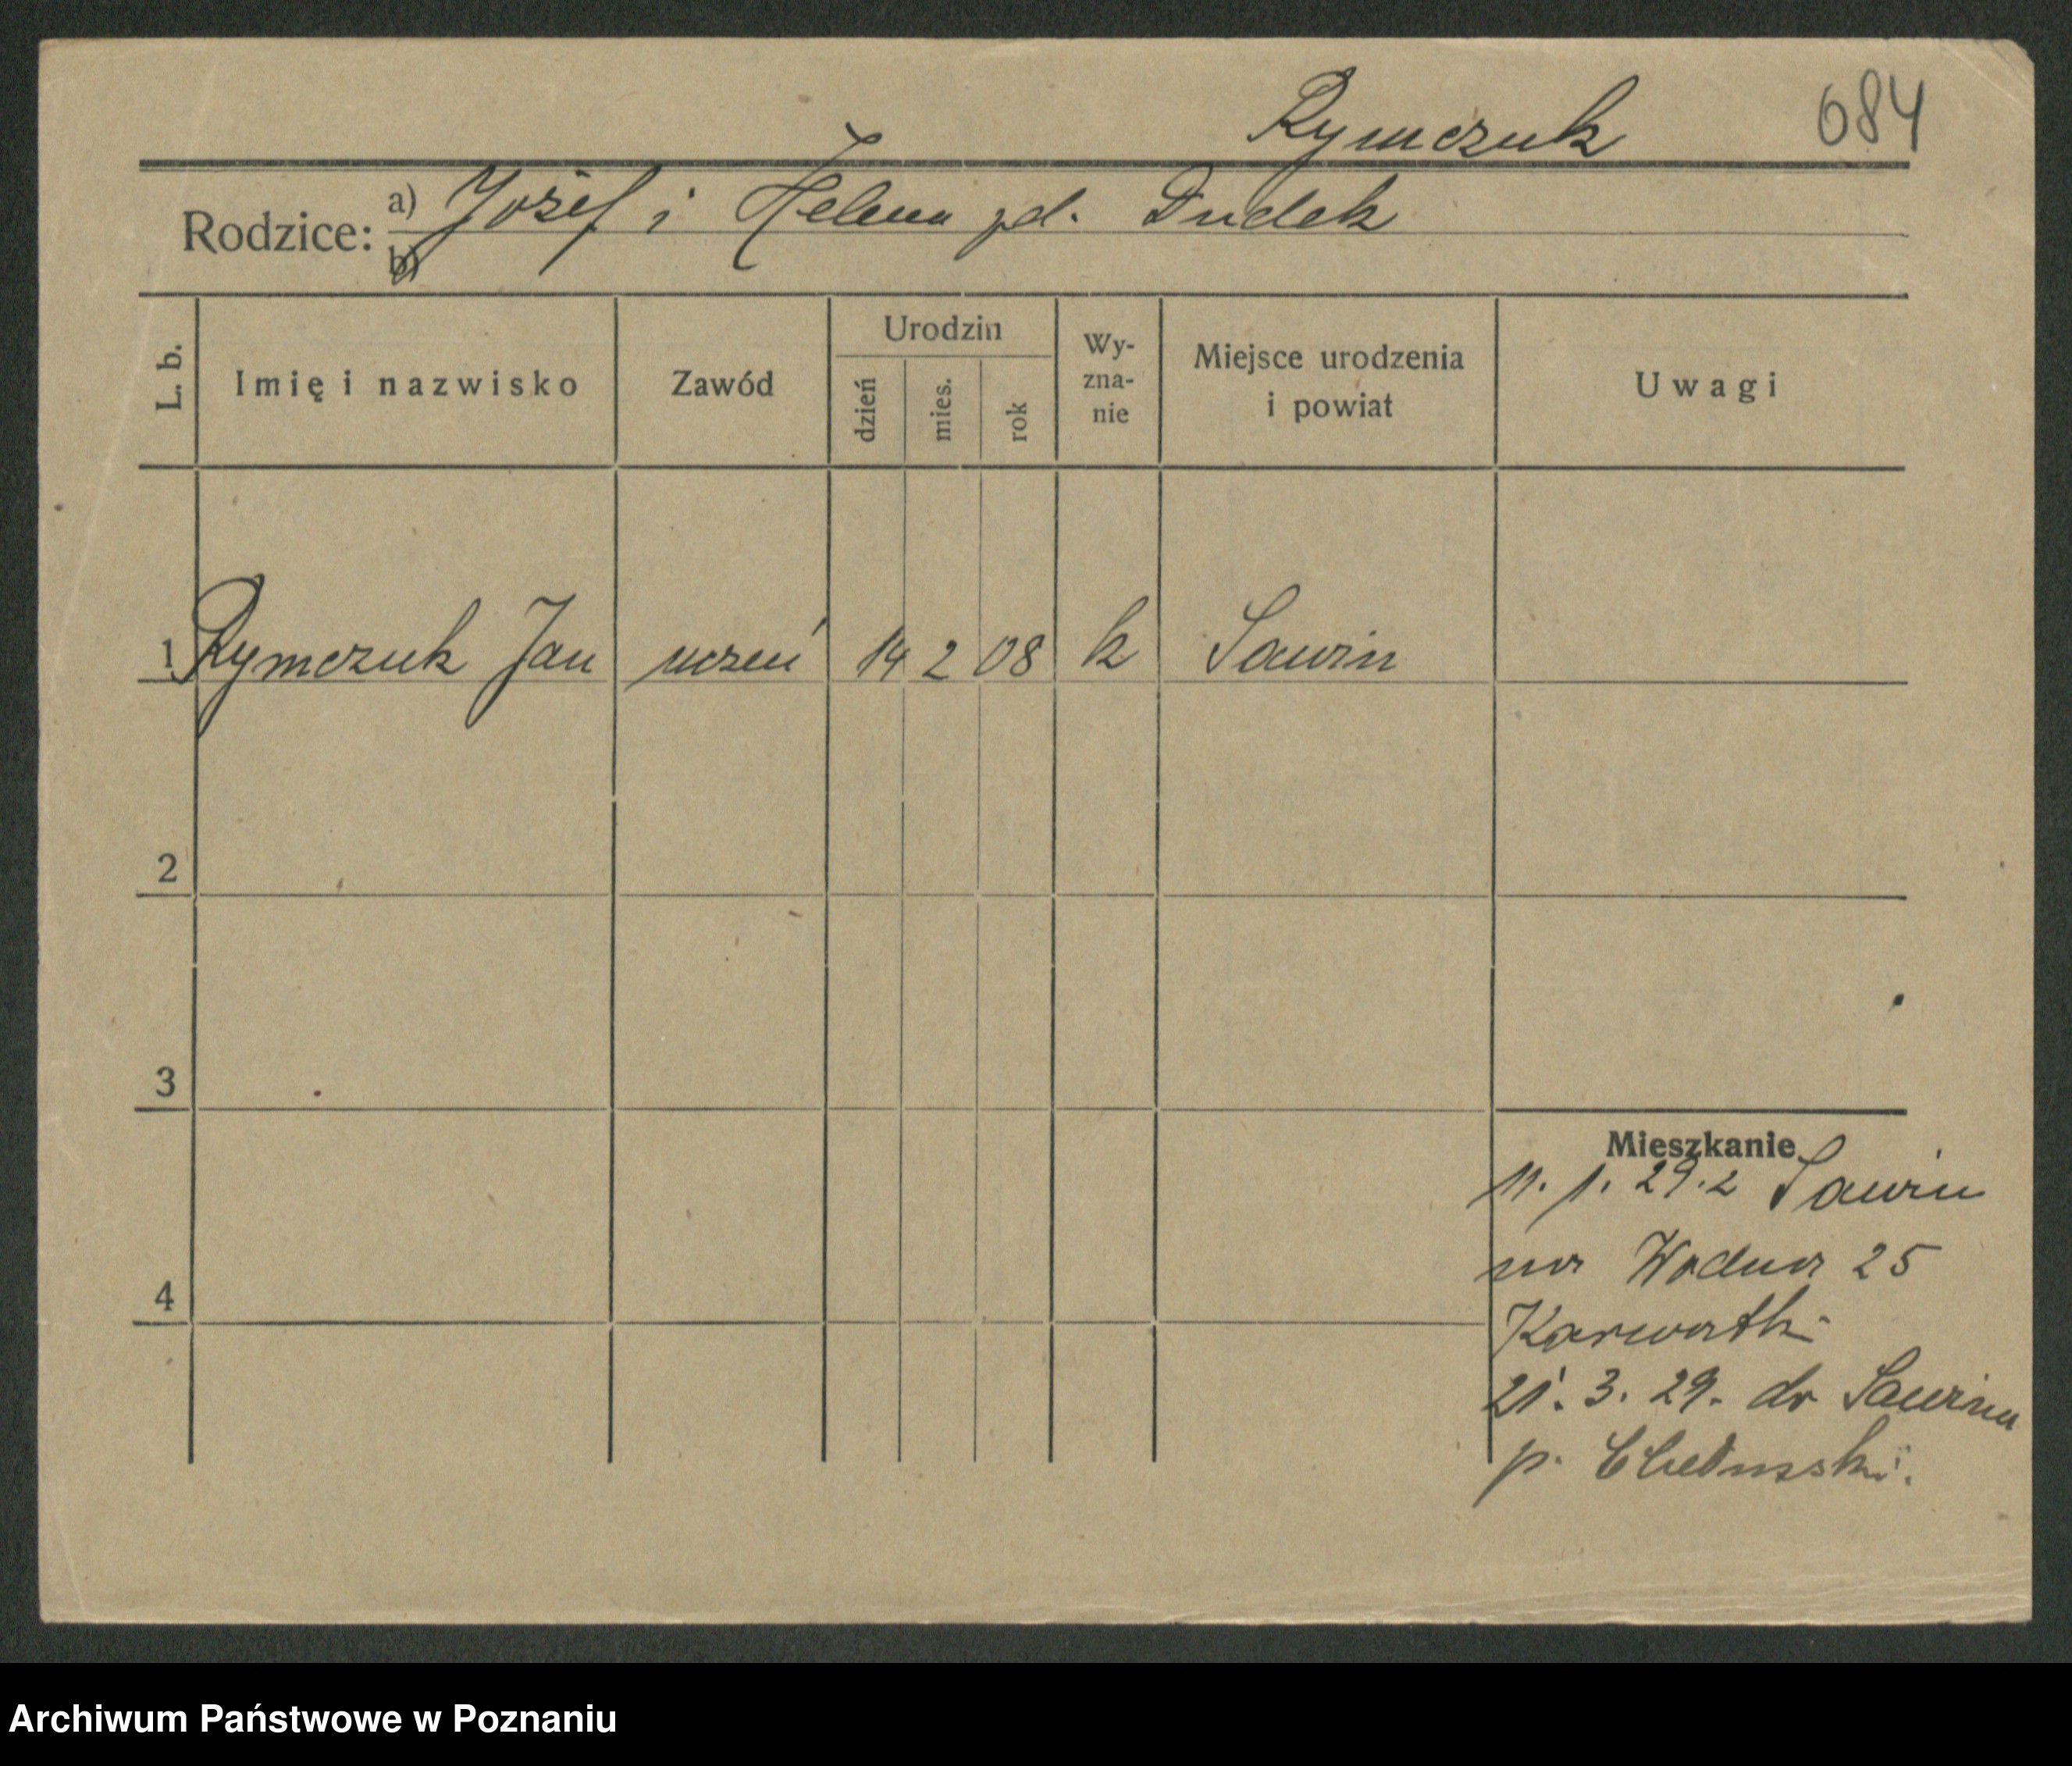 Rymczuk 684
Rodzice: a) Józef i Helena zd. Dudek
b)
L. b. Imię i nazwisko Zawód Urodzin dzień mies. rok Wy-zna-nie Miejsce urodzenia i powiat Uwagi
1 Rymczuk Jan uczeń 14 2 08 k Sawin
2
3
Mieszkanie
11. 1. 29. z Sawin
na Wodna 25
4
Karwatki
21. 3. 29. do Sawina
p. Chełmski.
Archiwum Państwowe w Poznaniu